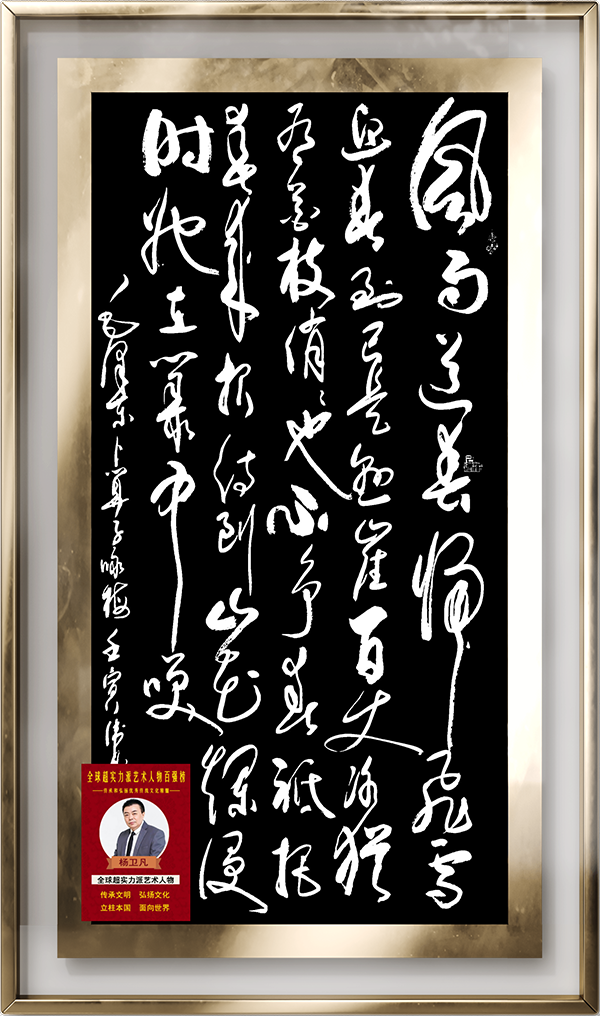 風雨送春归飞雪
迎春到已是悬崖百丈冰犹
有花枝俏俏也不争春祗把
春来报待到山花爛漫
时她在叢中笑
毛泽东卜算子咏梅壬寅
全球超实力派艺术人物百强榜
传承和弘扬优秀传统文化
杨卫凡
全球超实力派艺术人物
传承文明 弘扬文化
立柱本国 面向世界